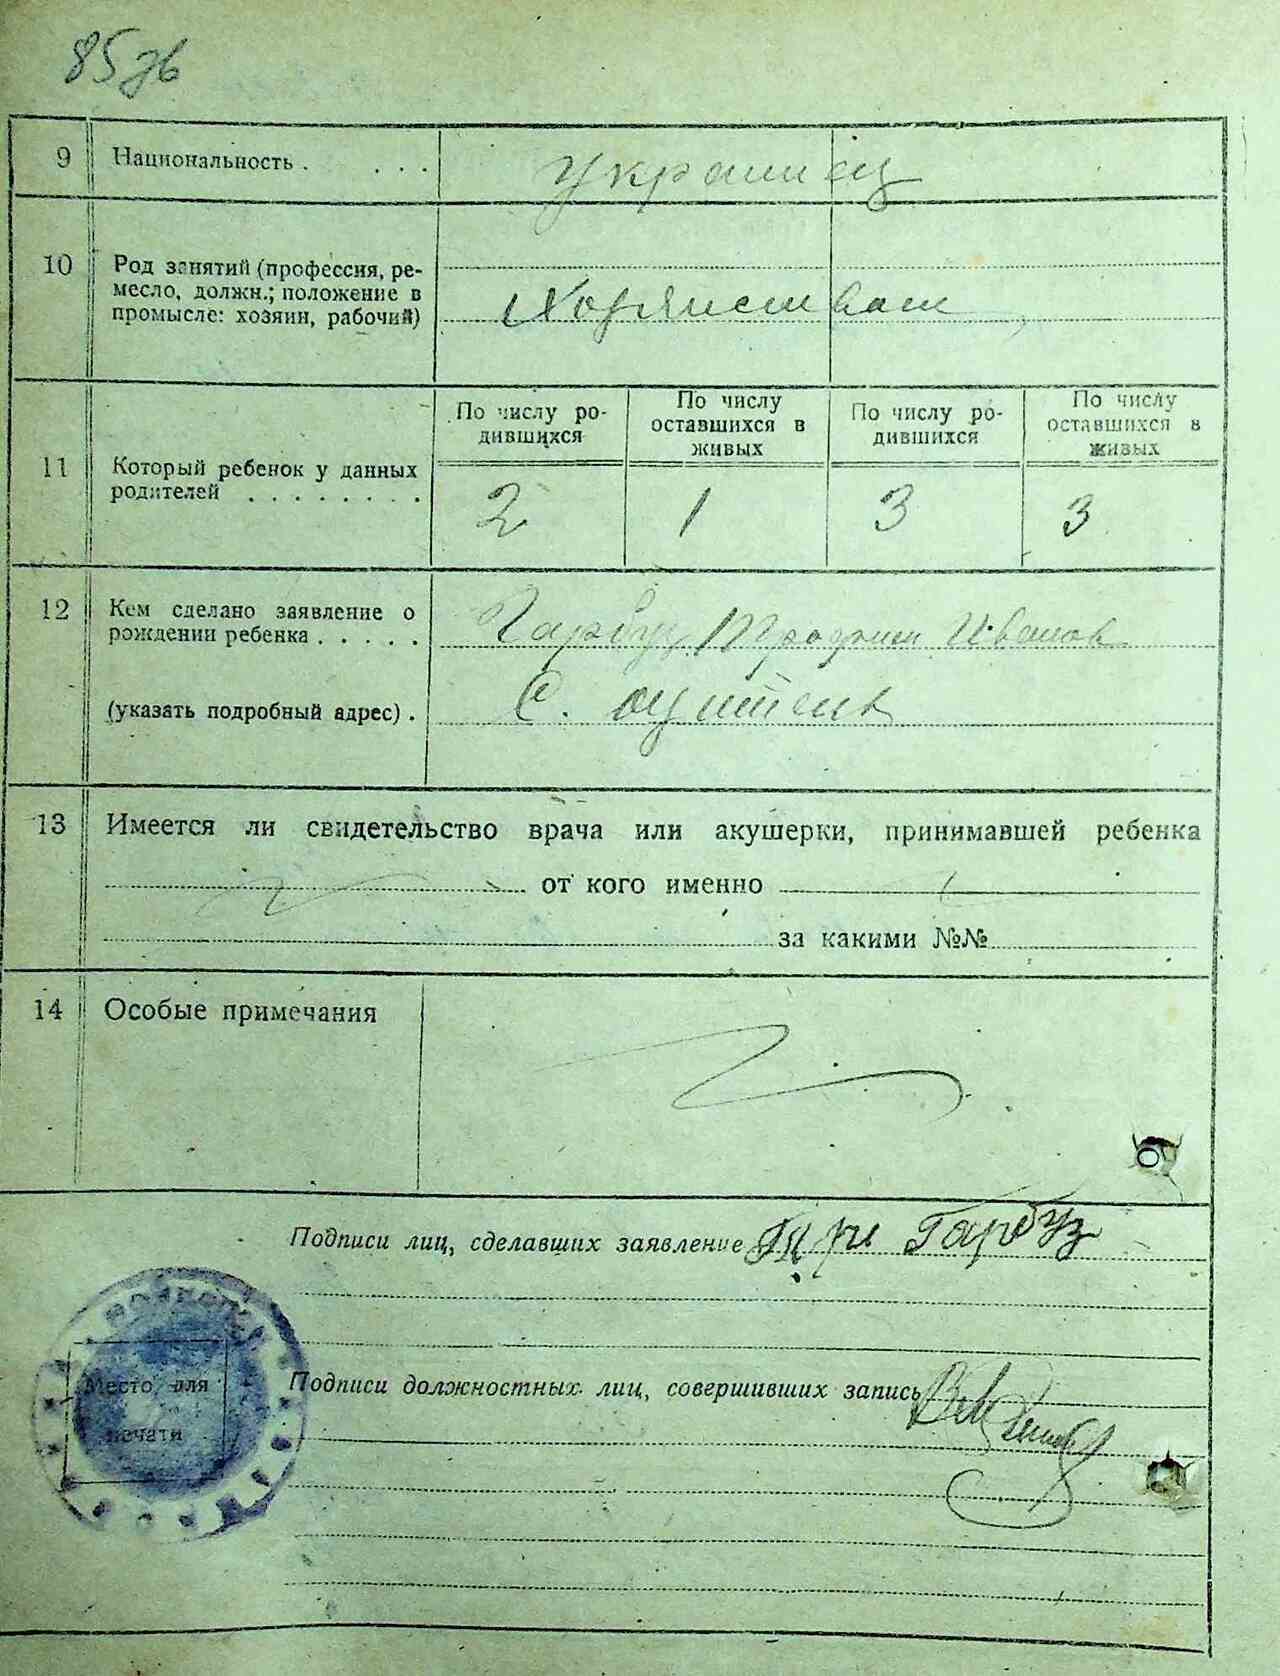 85зв
9 Национальность . . . . украинец
10 Род занятий (профессия, ре-
месло, должн.; положение в
промысле: хозяин, рабочий)
По числу ро-
дившихся
По числу
оставшихся в
живых
По числу ро-
дившихся
По числу
оставшихся в
живых
11 Который ребенок у данных
родителей . . . . . . . .
2 1 3 3
12 Кем сделано заявление о
рождении ребенка . . . . . Гарбуз Иванов
(указать подробный адрес) . С.
13 Имеется ли свидетельство врача или акушерки, принимавшей ребенка
от кого именно
за какими №№
14 Особые примечания
Подписи лиц, сделавших заявление Гарбуз
Место для
печати
Подписи должностных лиц, совершивших запись